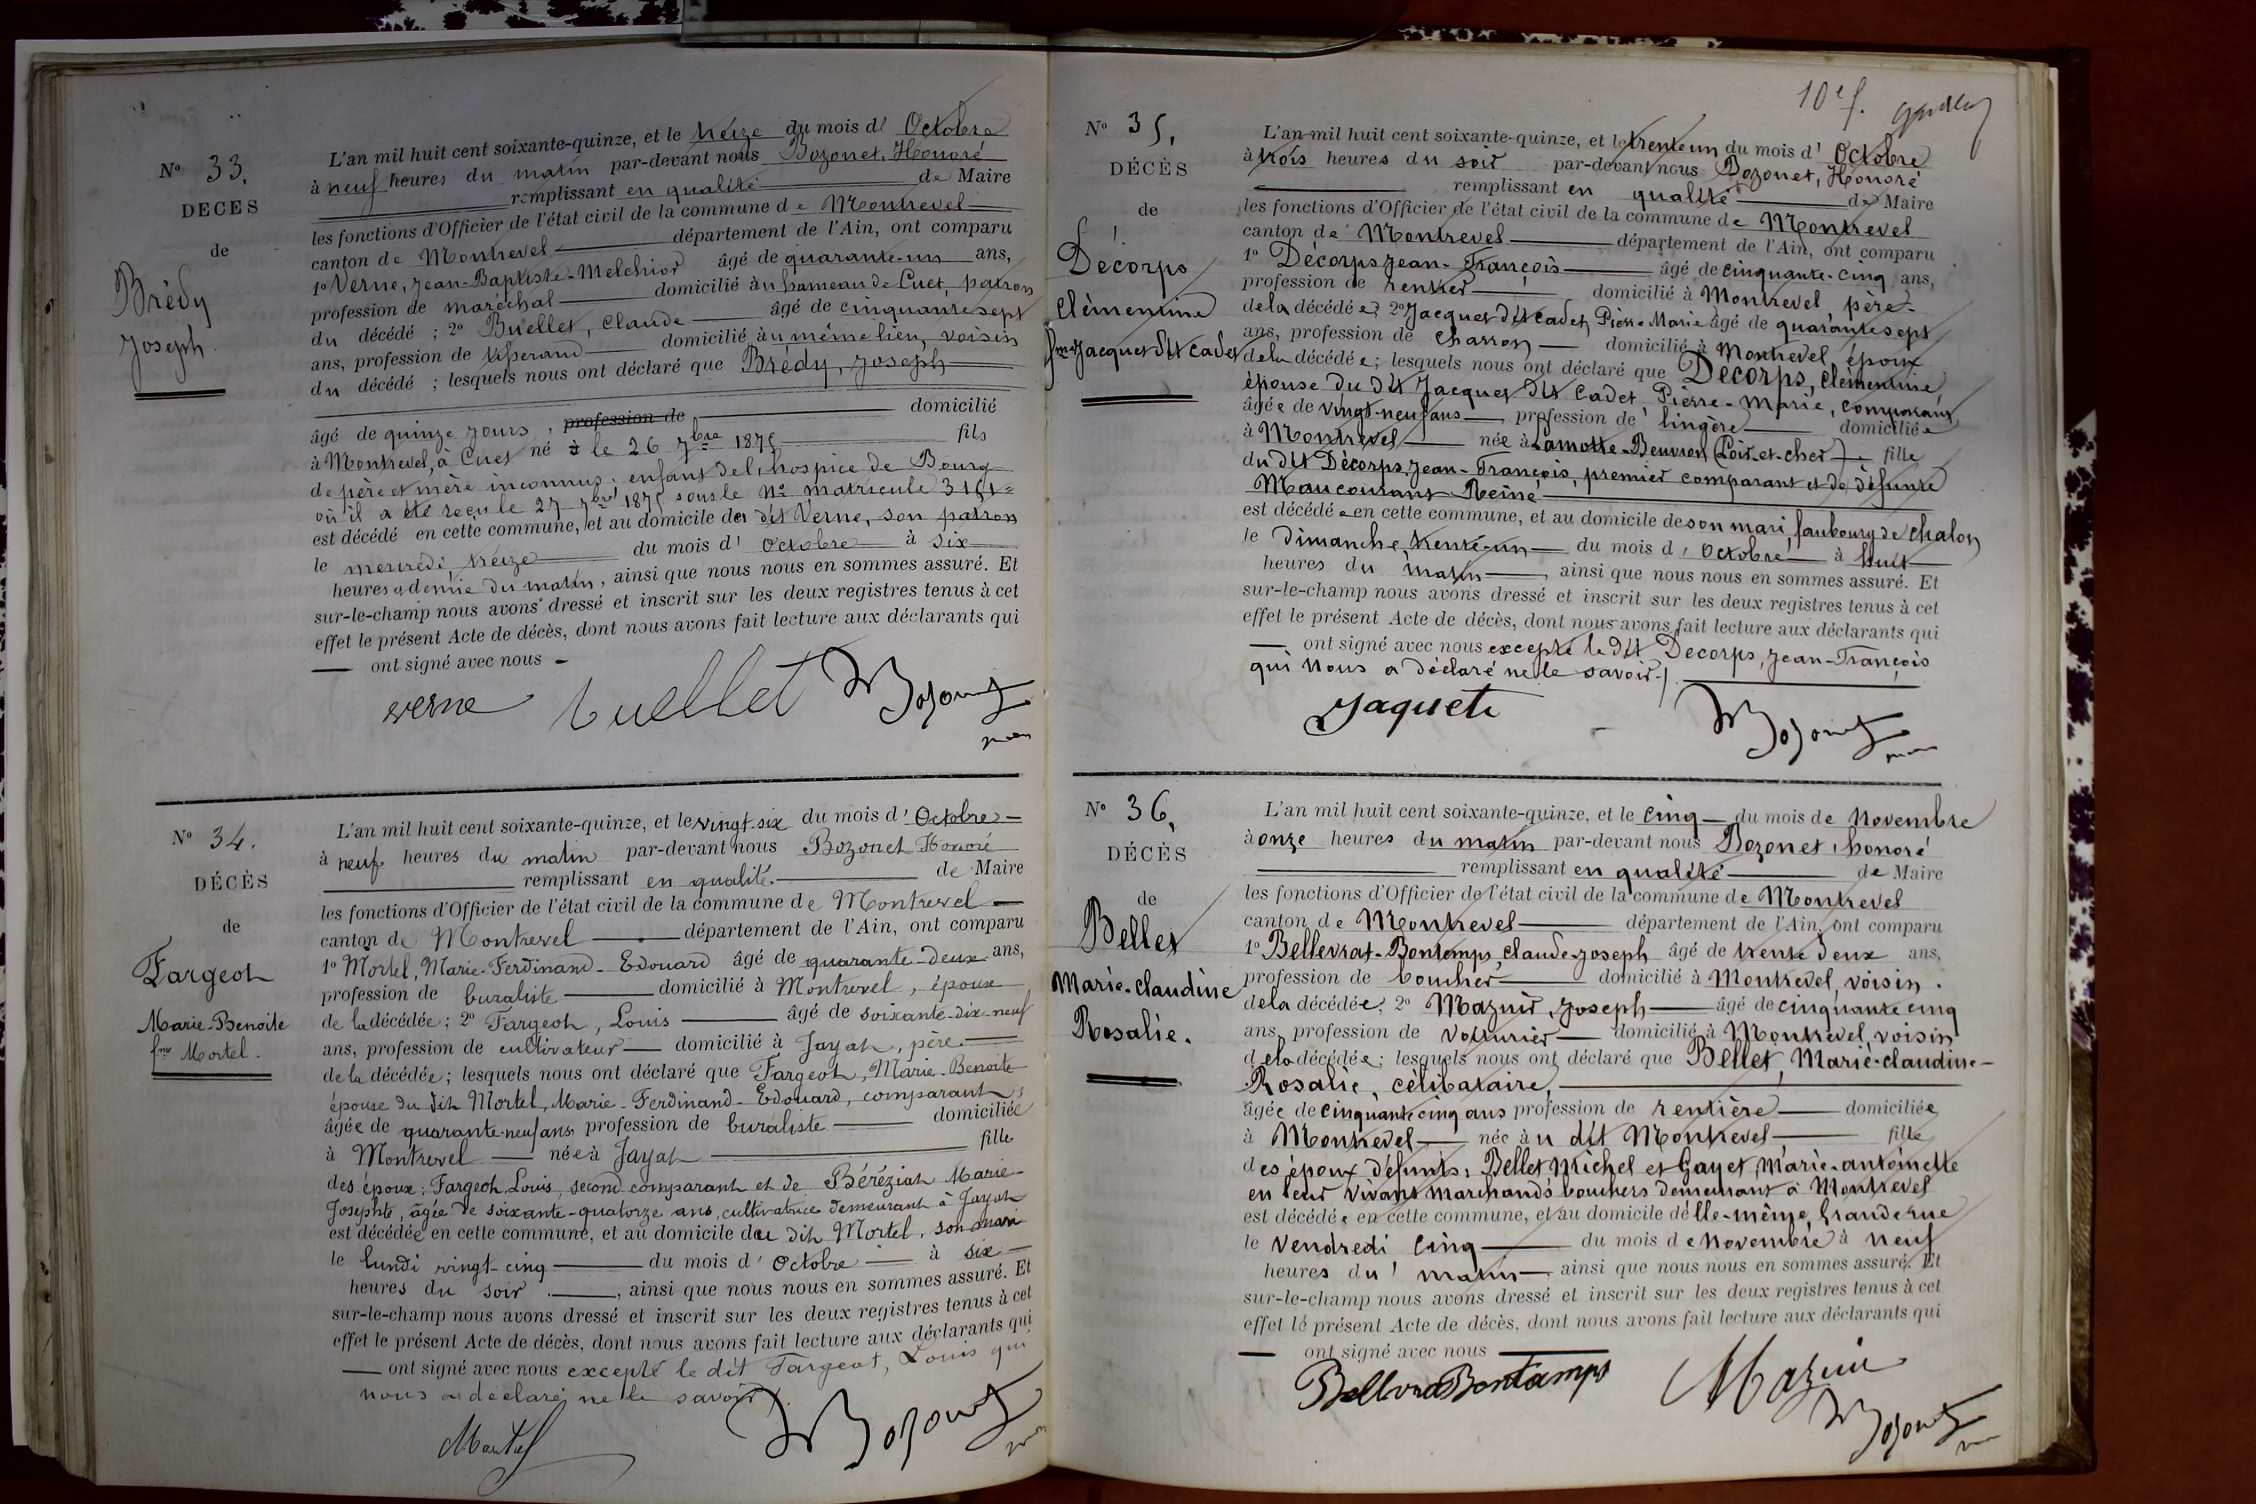 N° 33.
DECES
de
Brédy
Joseph
L'an mil huit cent soixante-quinze, et le treize du mois d' Octobre
à neuf heures du matin par-devant nous Bozonet, Honoré
remplissant en qualité de Maire
les fonctions d'Officier de l'état civil de la commune de Montrevel
canton de Montrevel département de l'Ain, ont comparu
1° Verne, Jean-Baptiste-Melchior âgé de quarante-un ans,
profession de maréchal domicilié au hameau de Cuet, patron
du décédé ; 2° Buellet, Claude âgé de cinquante sept
ans, profession de tisserand domicilié au même lieu, voisin
du décédé ; lesquels nous ont déclaré que Brédy, Joseph
âgé de quinze jours, profession de domicilié
à Montrevel, à Cuet né à le 26 7bre 1875 fils
de père et mère inconnus, enfant de l'hospice de Bourg
où il a été reçu le 27 7bre 1875 sous le N° matricule 3161
est décédé en cette commune, et au domicile du dit Verne, son patron
le mercredi treize du mois d' Octobre à six
heures & demie du matin, ainsi que nous nous en sommes assuré. Et
sur-le-champ nous avons dressé et inscrit sur les deux registres tenus à cet
effet le présent Acte de décès, dont nous avons fait lecture aux déclarants qui
ont signé avec nous
verne buellet Bozonet
N° 34.
DÉCÈS
de
Fargeot
Marie-Benoite
fme Mortel.
L'an mil huit cent soixante-quinze, et le vingt-six du mois d' Octobre
à neuf heures du matin par-devant nous Bozonet Honoré
remplissant en qualité de Maire
les fonctions d'Officier de l'état civil de la commune de Montrevel
canton de Montrevel département de l'Ain, ont comparu
1° Mortel, Marie-Ferdinand-Edouard âgé de quarante-deux ans,
profession de buraliste domicilié à Montrevel, époux
de la décédée ; 2° Fargeot, Louis âgé de soixante-dix-neuf
ans, profession de cultivateur domicilié à Jayat, père
de la décédée ; lesquels nous ont déclaré que Fargeot, Marie-Benoite
épouse du dit Mortel, Marie-Ferdinand-Edouard, comparant,
âgée de quarante-neuf ans profession de buraliste domiciliée
à Montrevel née à Jayat fille
des époux : Fargeot, Louis, second comparant et de Béréziat Marie-
Josephte, âgée de soixante-quatorze ans, cultivatrice demeurant à Jayat
est décédée en cette commune, et au domicile du dit Mortel, son mari
le lundi vingt-cinq du mois d' Octobre à six
heures du soir, ainsi que nous nous en sommes assuré. Et
sur-le-champ nous avons dressé et inscrit sur les deux registres tenus à cet
effet le présent Acte de décès, dont nous avons fait lecture aux déclarants qui
ont signé avec nous excepté le dit Fargeot, Louis qui
nous a déclaré ne le savoir.
Mortel Bozonet
10e f.
N° 35.
DÉCÈS
de
Décorps
Clèmentine
fme Jacquet dit Cadet
L'an mil huit cent soixante-quinze, et le trente un du mois d' Octobre
à trois heures du soir par-devant nous Bozonet, Honoré
remplissant en qualité de Maire
les fonctions d'Officier de l'état civil de la commune de Montrevel
canton de Montrevel département de l'Ain, ont comparu
1° Décorps Jean-François âgé de cinquante-cinq ans,
profession de rentier domicilié à Montrevel, père
de la décédée ; 2° Jacquet dit Cadet, Pierre-Marie âgé de quarante sept
ans, profession de charron domicilié à Montrevel, époux
de la décédée ; lesquels nous ont déclaré que Décorps, Clèmentine,
épouse du dit Jacquet dit Cadet, Pierre-Marie, comparant,
âgée de vingt-neuf ans profession de lingère domiciliée
à Montrevel née à Lamotte-Beuvron (Loir-et-cher) fille
du dit Décorps, Jean-François, premier comparant et de défunte
Maucourant Reine
est décédée en cette commune, et au domicile de son mari, faubourg de chalon
le Dimanche trente-un du mois d' Octobre à huit
heures du matin, ainsi que nous nous en sommes assuré. Et
sur-le-champ nous avons dressé et inscrit sur les deux registres tenus à cet
effet le présent Acte de décès, dont nous avons fait lecture aux déclarants qui
ont signé avec nous excepté le dit Décorps, Jean-François
qui nous a déclaré ne le savoir.
Jaquet Bozonet
N° 36.
DÉCÈS
de
Bellet
Marie-claudine
Rosalie.
L'an mil huit cent soixante-quinze, et le cinq du mois de Novembre
à onze heures du matin par-devant nous Bozonet, honoré
remplissant en qualité de Maire
les fonctions d'Officier de l'état civil de la commune de Montrevel
canton de Montrevel département de l'Ain, ont comparu
1° Bellevrat-Bontemps, claude-joseph âgé de trente deux ans,
profession de boucher domicilié à Montrevel, voisin
de la décédée ; 2° Mazuir, Joseph âgé de cinquante cinq
ans, profession de voiturier domicilié à Montrevel, voisin
de la décédée ; lesquels nous ont déclaré que Bellet, Marie-claudine-
Rosalie, célibataire,
âgée de cinquante cinq ans profession de rentière domiciliée
à Montrevel née au dit Montrevel fille
des époux défunts : Bellet Michel et Gayet, Marie-antoinette
en leur vivant marchands bouchers demeurant à Montrevel
est décédée en cette commune, et au domicile d'elle-même, Grande rue
le Vendredi cinq du mois de Novembre à neuf
heures du matin, ainsi que nous nous en sommes assuré. Et
sur-le-champ nous avons dressé et inscrit sur les deux registres tenus à cet
effet le présent Acte de décès, dont nous avons fait lecture aux déclarants qui
ont signé avec nous
Bellvra Bontamps Mazuir
Bozonet